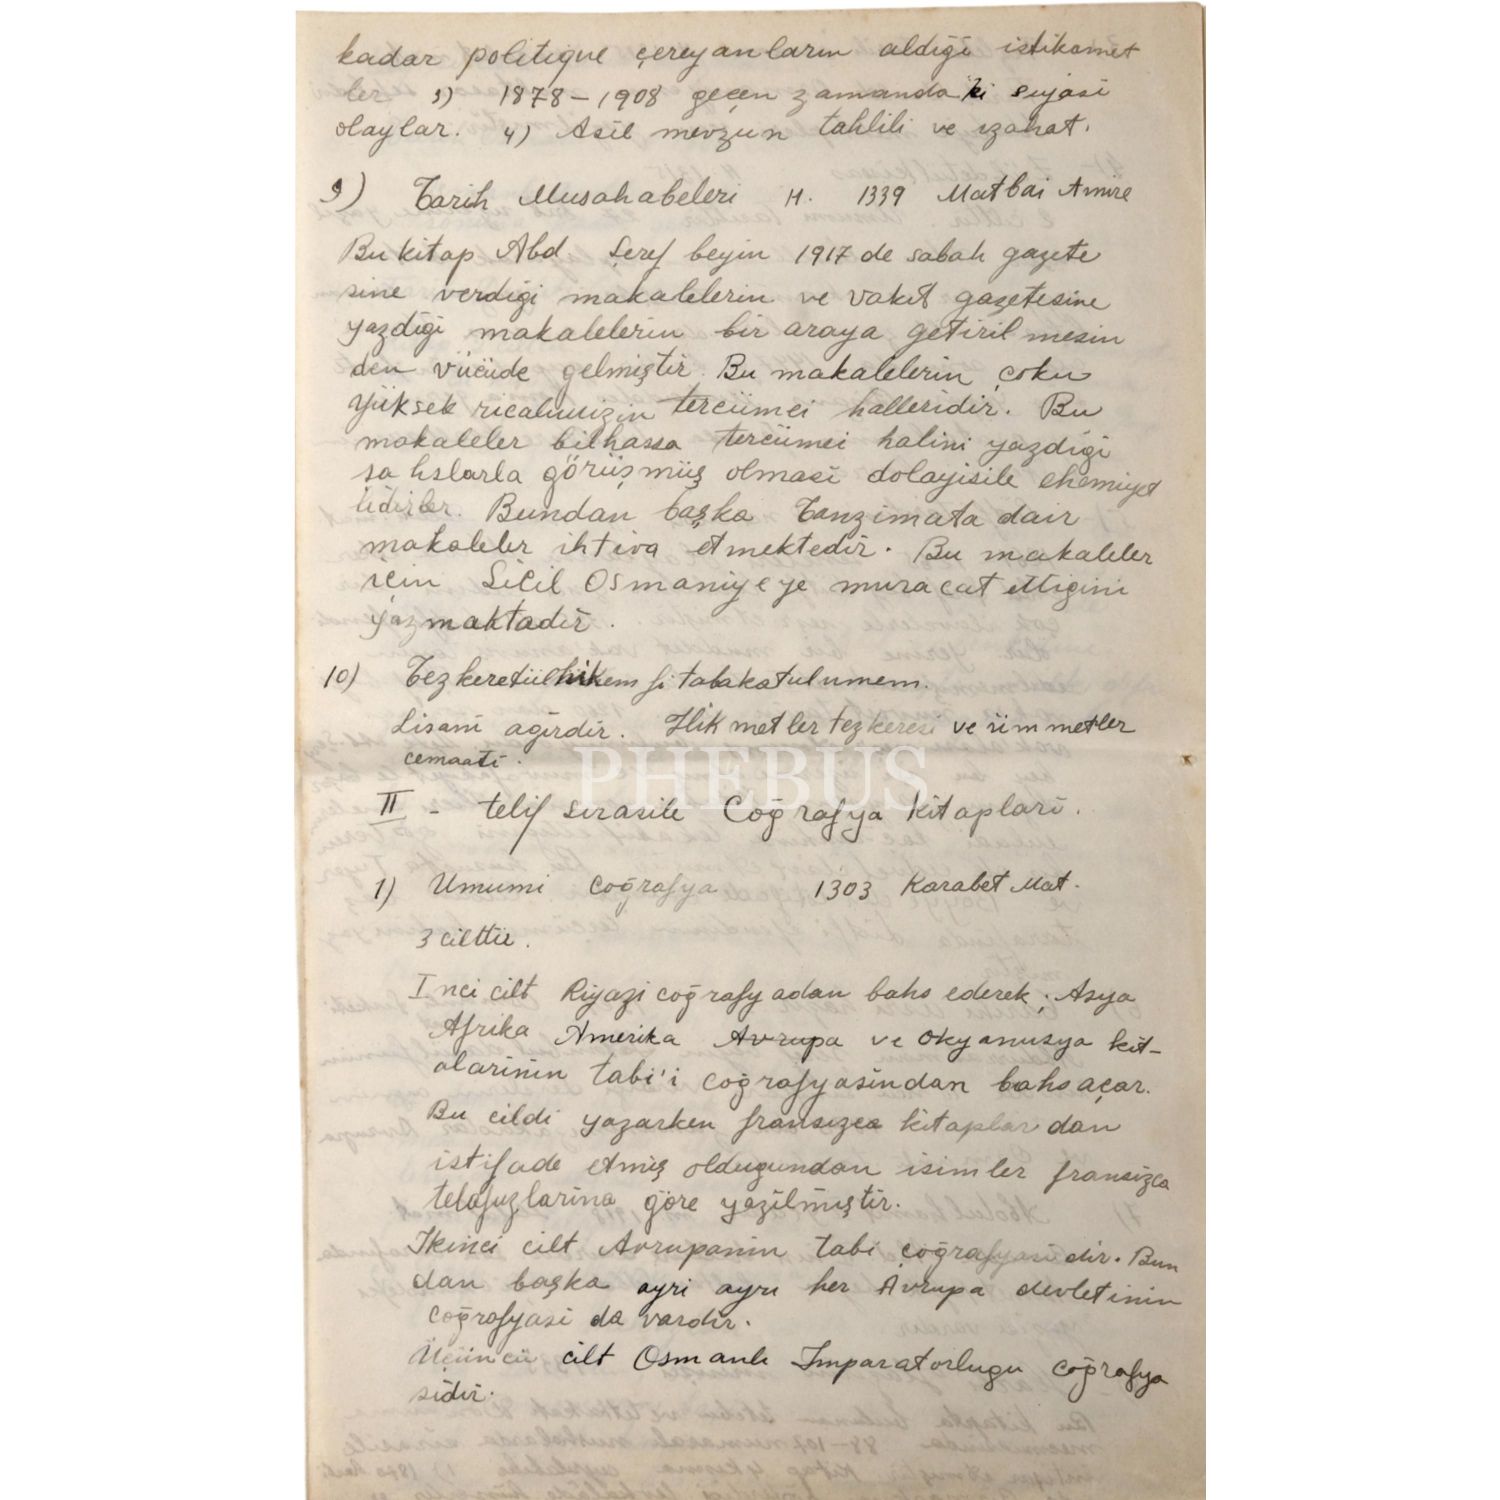 kadar politique çereyanların aldiği istikamet
ler 3) 1878-1908 geçen zamandaki siyasi
olaylar. 4) Asil mevzuun tahlili ve izahat.
9) Tarih Musahabeleri H. 1339 Matbai Amire
Bu kitap Abd. Şeref beyin 1917 de sabah gazete
sine verdigi makalelerin ve vakit gazetesine
yazdiği makalelerin bir araya getiril mesin
den vücüde gelmiştir. Bu makalelerin çoku
yüksek ricalimizin tercümei halleridir. Bu
makaleler bilhassa tercümei halini yazdigi
şahslarla görüşmüş olmasi dolayisile ehemiyet
lidirler. Bundan başka Tanzimata dair
makaleler ihtiva etmektedir. Bu makaleler
için Sicil Osmaniyeye muracat ettigini
yazmaktadir.
10) Tezkeretülhikem fi tabakatulumem.
Lisani agirdir. Hikmetler tezkeresi ve ümmetler
cemaati.
II - telif sırasile Coğrafya kitaplari.
1) Umumi coğrafya 1303 Karabet Mat.
3 cilttir.
I nci cilt Riyazi coğrafyadan bahs ederek; Asya
Afrika Amerika Avrupa ve Okyanusya kit-
alarinin tabi'i coğrafyasindan bahs açar.
Bu cildi yazarken fransızca kitaplardan
istifade etmiş oldugundan isimler fransizca
telafuzlarina göre yazilmıştir.
Ikinci cilt Avrupanin tabi coğrafyasidir. Bun
dan başka ayri ayrı her Avrupa devletinin
coğrafyasi da vardir.
Üçüncü cilt Osmanlı Imparatorlugu coğrafya
sidir.
PHEBUS